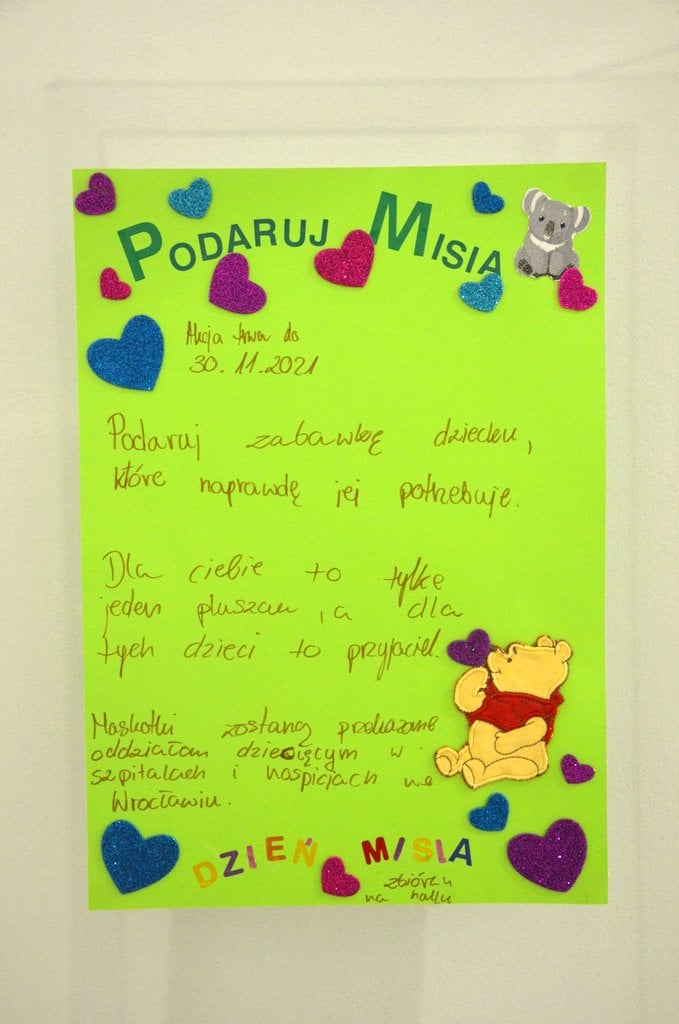 PODARUJ MISIA
Akcja trwa do
30.11.2021
Podaruj zabawkę dziecku,
które naprawdę jej potrzebuje.
Dla ciebie to tylko
jeden pluszak, a dla
tych dzieci to przyjaciel.
Maskotki zostaną przekazane
oddziałom dziecięcym w
szpitalach i hospicjach we
Wrocławiu.
DZIEŃ MISIA
zbiórka
na hallu